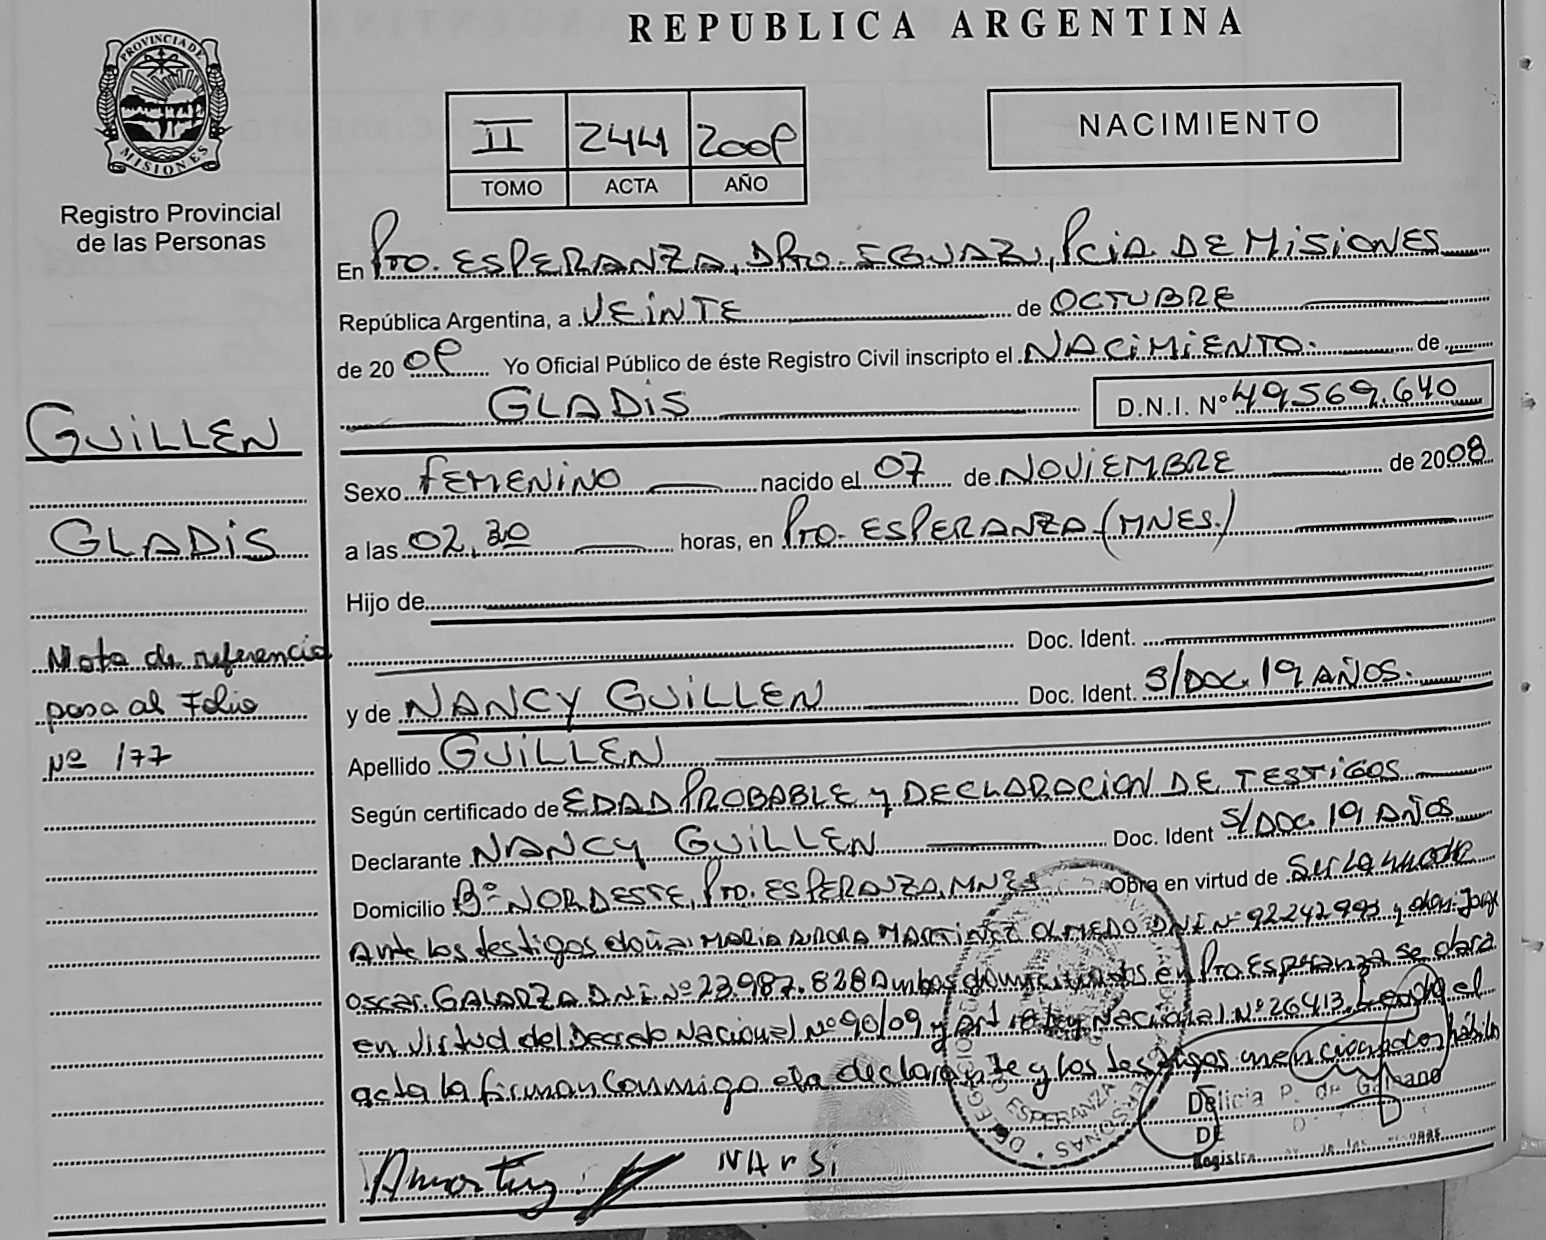 REPUBLICA ARGENTINA
PROVINCIA DE MISIONES
Registro Provincial
de las Personas
II 244 2009
TOMO ACTA AÑO
NACIMIENTO
En Pto. ESPERANZA, DPto. IGUAZU, PciA. DE MiSiONES
República Argentina, a VEiNTE de OCTUBRE
de 20 09 Yo Oficial Público de éste Registro Civil inscripto el NACiMiENTO. de
GLADiS D.N.I. Nº 49.569.640
GUiLLEN
GLADiS
Nota de referencia
pasa al Folio
Nº 177
Sexo FEMENiNO nacido el 07 de NOViEMBRE de 2008
a las 02,30 horas, en Pto. ESPERANZA (MNES.)
Hijo de
Doc. Ident.
y de NANCY GUiLLEN Doc. Ident. S/DOC. 19 AÑOS.
Apellido GUiLLEN
Según certificado de EDAD PROBABLE y DECLARACION DE TESTiGOS
Declarante NANCY GUiLLEN Doc. Ident S/DOC. 19 AÑOS
Domicilio Bº NORDESTE, Pto. ESPERANZA, MNES Obra en virtud de Ser la madre
Ante los testigos doña: MARIA AURORA MARTINEZ OLMEDO DNI Nº 92.242.993 y don: Jorge
Oscar GALARZA DNI Nº 23.987.828 Ambos domiciliados en Pto. Esperanza se labra
en virtud del Decreto Nacional Nº 90/09 y Art Ley Nacional Nº 26413. Leída el
acta la firman Conmigo la declarante y los testigos mencionados hábiles
Delicia P. de
NArSi